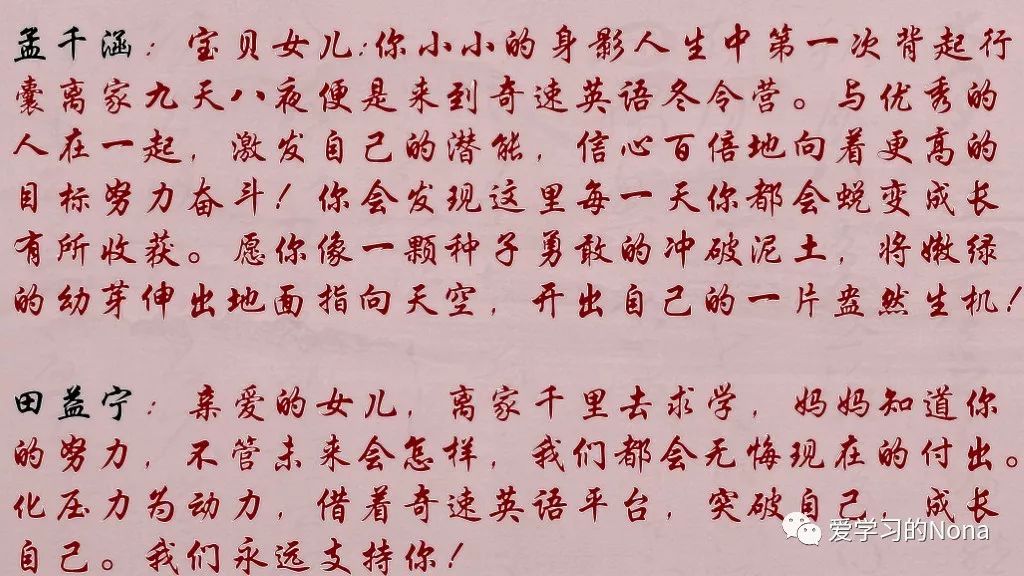 孟千涵：宝贝女儿:你小小的身影人生中第一次背起行
囊离家九天八夜便是来到奇速英语冬令营。与优秀的
人在一起，激发自己的潜能，信心百倍地向着更高的
目标努力奋斗！你会发现这里每一天你都会蜕变成长
有所收获。愿你像一颗种子勇敢的冲破泥土，将嫩绿
的幼芽伸出地面指向天空，开出自己的一片盎然生机！
田益宁：亲爱的女儿，离家千里去求学，妈妈知道你
的努力，不管未来会怎样，我们都会无悔现在的付出。
化压力为动力，借着奇速英语平台，突破自己，成长
自己。我们永远支持你！
爱学习的Nona